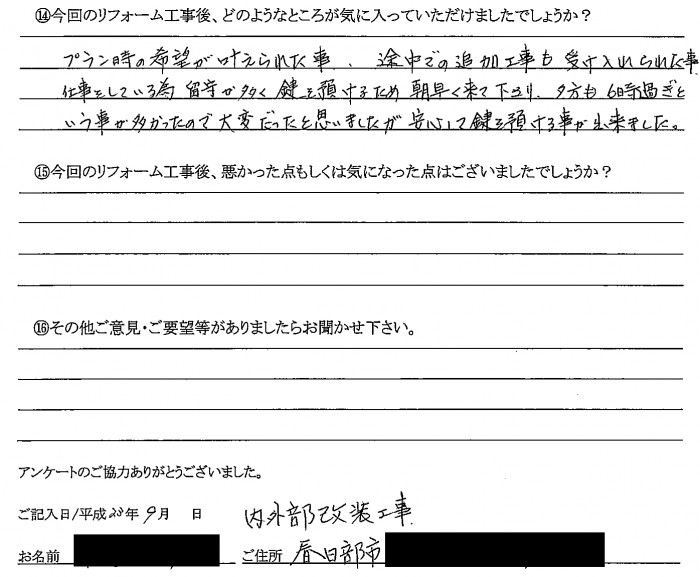 ⑭今回のリフォーム工事後、どのようなところが気に入っていただけましたでしょうか？
プラン時の希望が叶えられた事、途中での追加工事も受け入れられた事
仕事をしている為留守が多く鍵を預けるため朝早く来て下さり、夕方も6時過ぎと
いう事が多かったので大変だったと思いましたが安心して鍵を預ける事が出来ました。
⑮今回のリフォーム工事後、悪かった点もしくは気になった点はございましたでしょうか？
⑯その他ご意見・ご要望等がありましたらお聞かせ下さい。
アンケートのご協力ありがとうございました。
ご記入日/平成20年9月 日 内外部改装工事
お名前 ご住所 春日部市